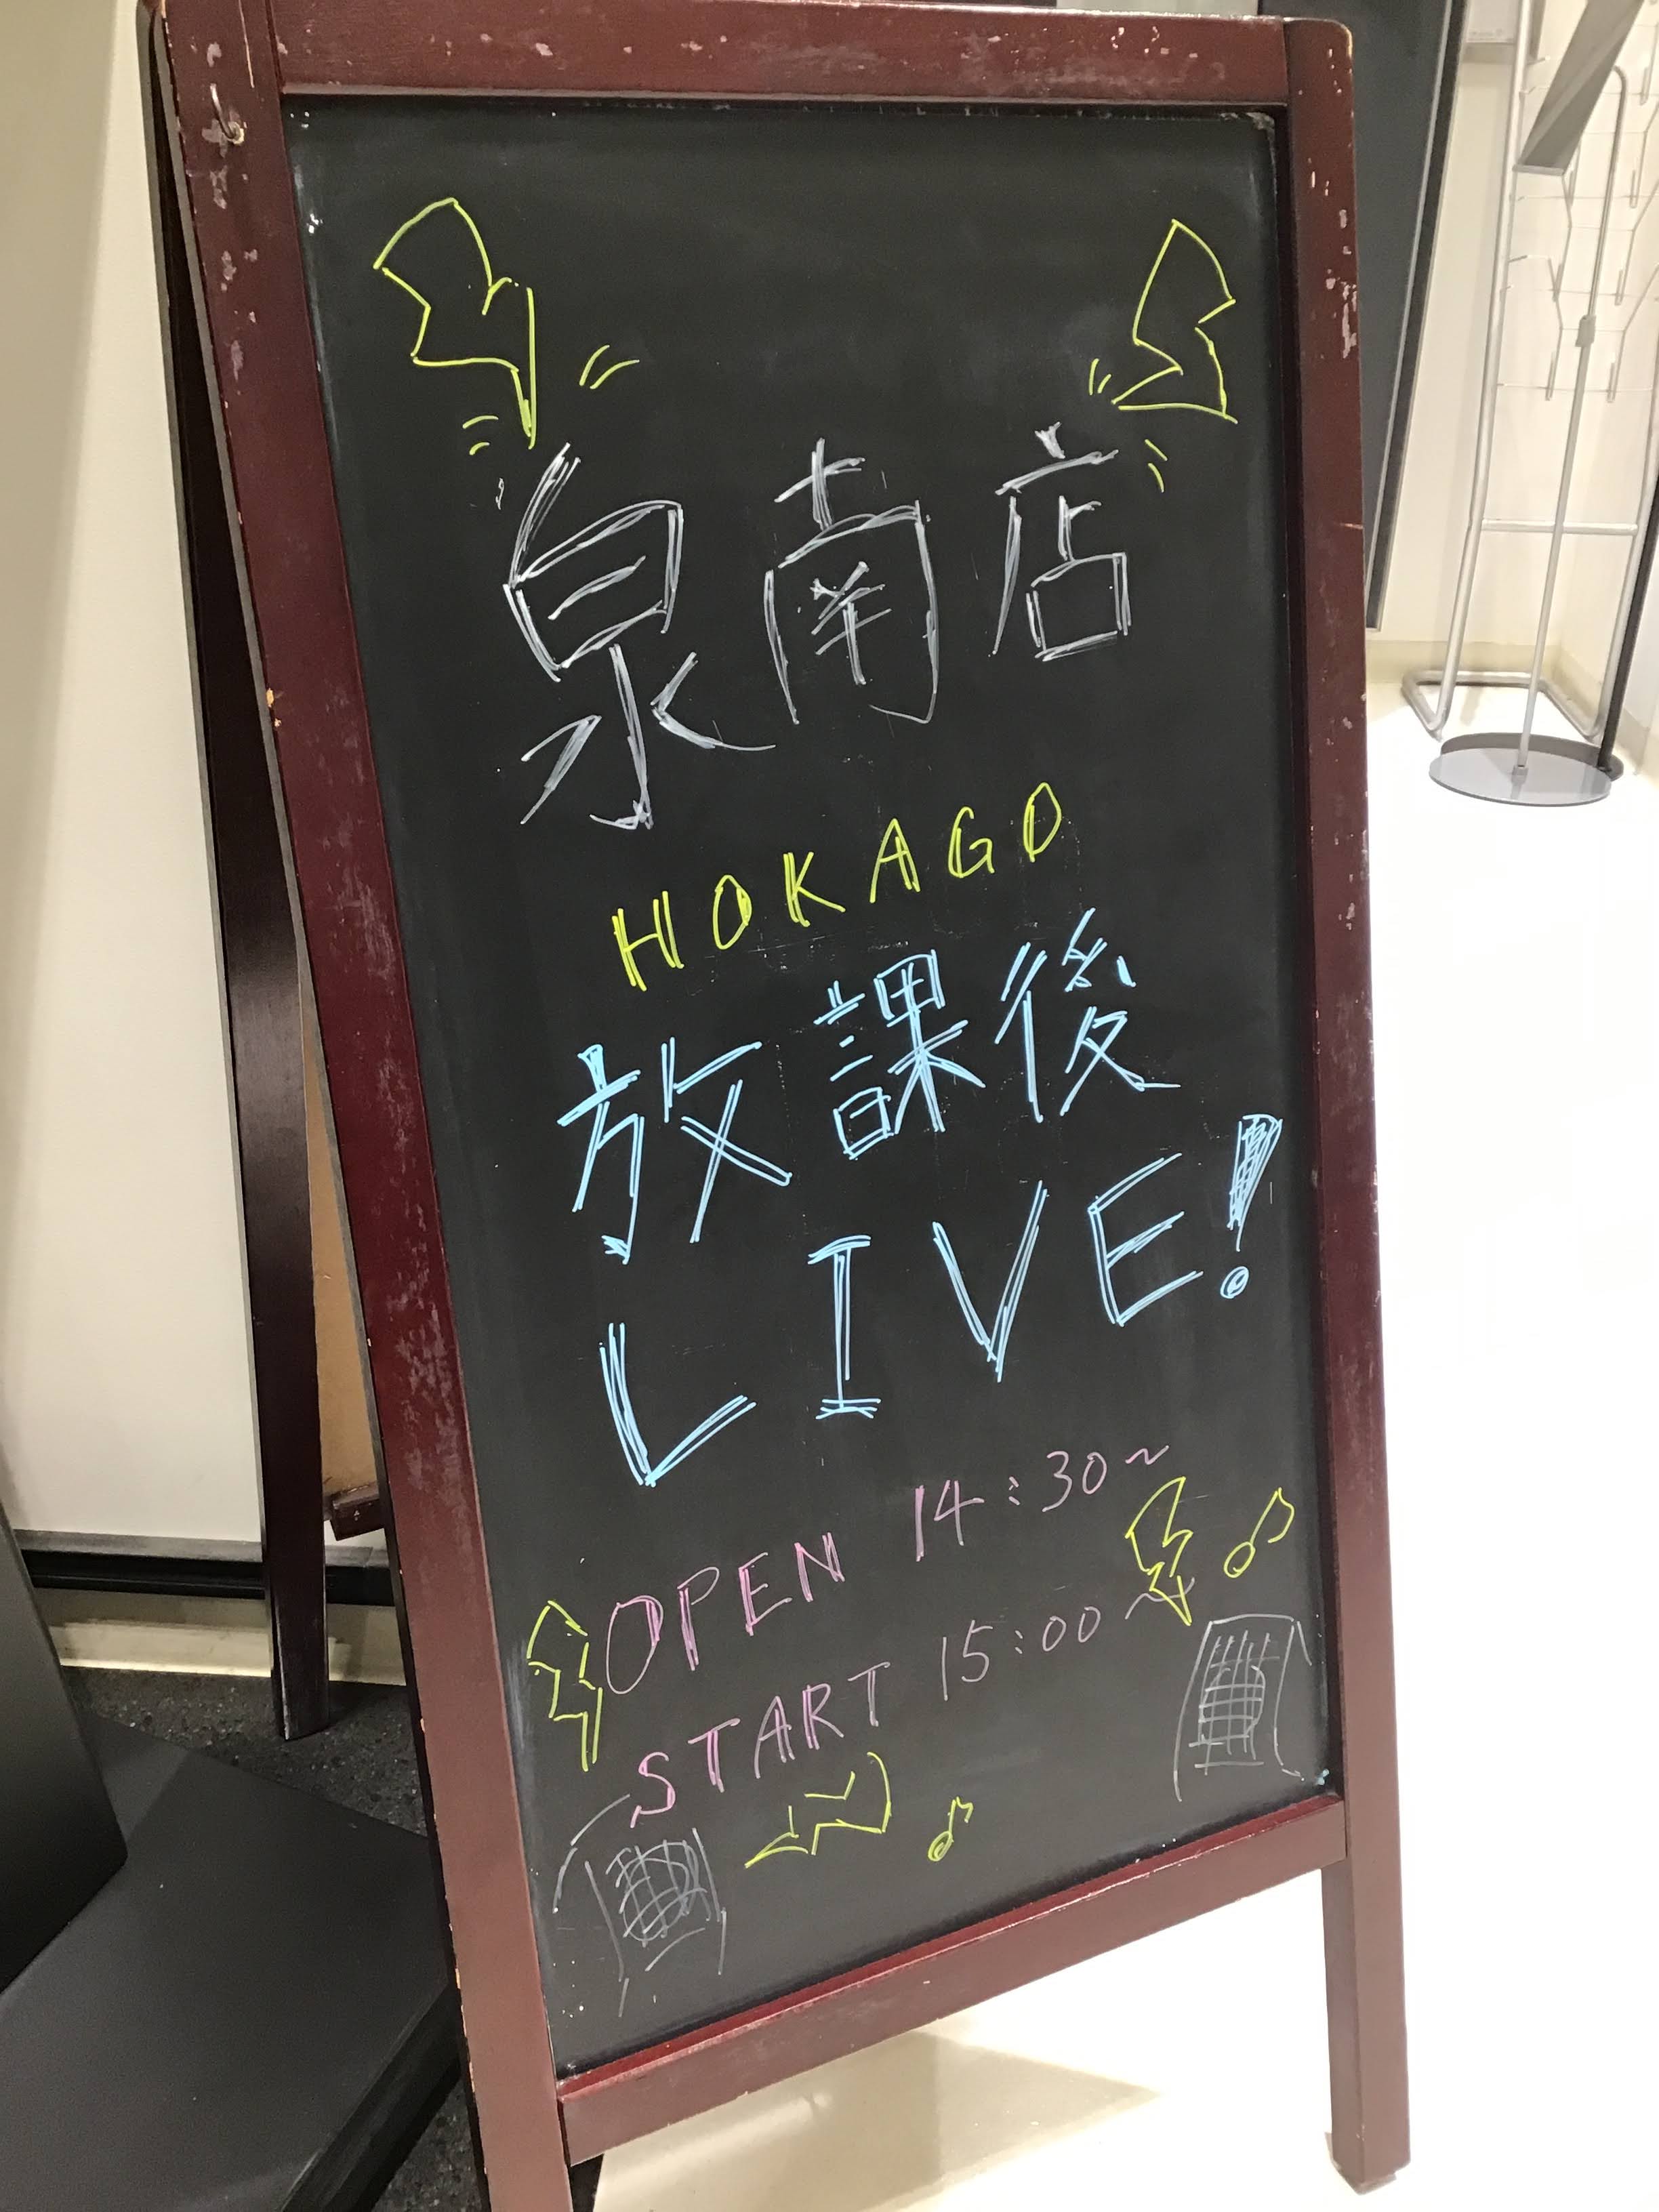 泉南店
HOKAGO
放課後
LIVE!
OPEN 14:30~
START 15:00~